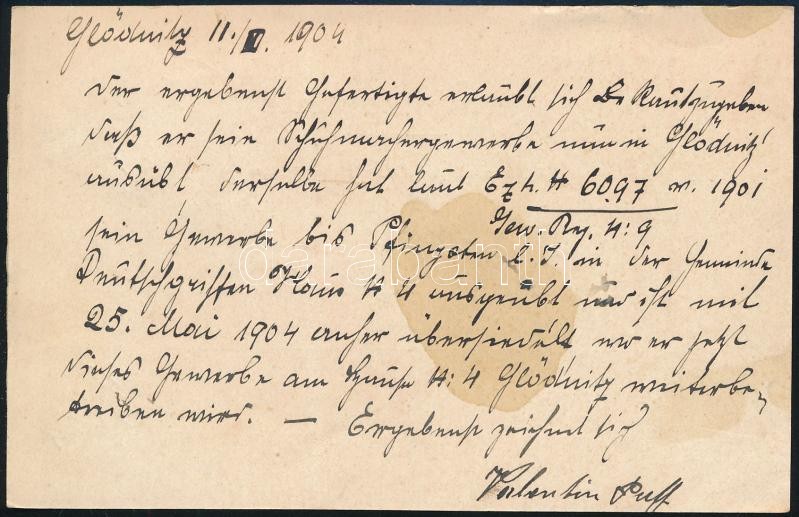 Glödnitz 11./V. 1904
Der ergebenst Gefertigte erlaubt sich bekanntzugeben
daß er sein Schuhmachergewerbe nun in Glödnitz
ausübt derselbe hat laut Ezh. № 6097 v. 1901
Gew. Reg. №: 9
sein Gewerbe bis Pfingsten l. J. in der Gemeinde
Deutschgriffen Haus № 4 ausgeübt und ist mit
25. Mai 1904 anher übersiedelt wo er jetzt
dieses Gewerbe am Hause №: 4 Glödnitz weiterbe-
treiben wird. — Ergebenst zeichnet sich
Valentin Puff
darabanth